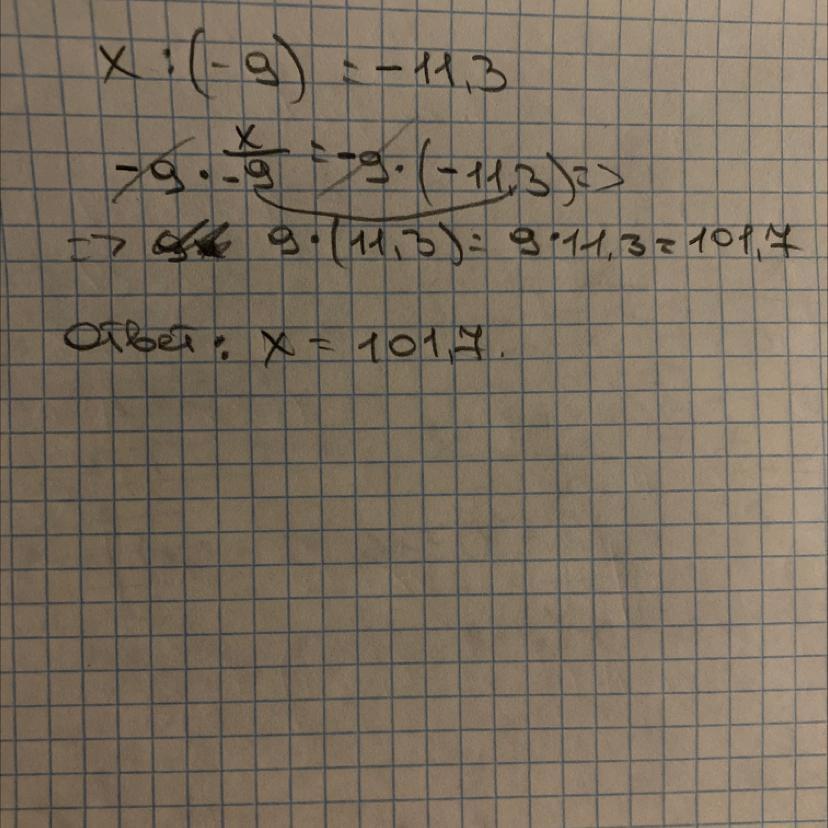 x : (-9) = -11,3
-9 · x/-9 = -9 · (-11,3) =>
=> 9 · (11,3) = 9 · 11,3 = 101,7
Ответ: x = 101,7.